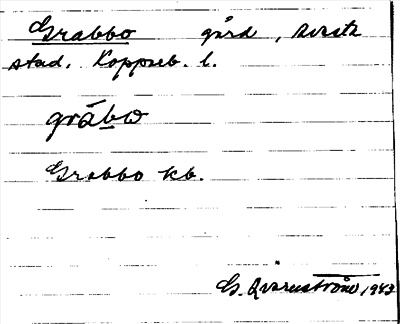 Grabbo gård, Avesta
stad. Kopparb. l.
gràbω
Grabbo kb.
G. Qvarnström, 1943